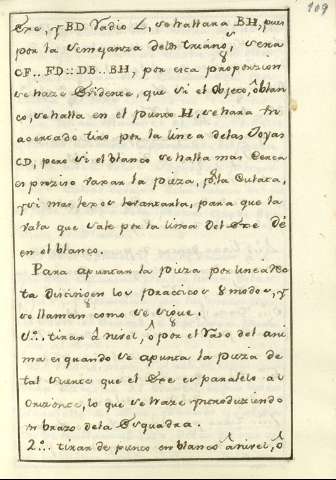 109
Exe, y BD Radio L, se hallara BH, pues
por la semejanza de los triang.s, sera
CF..FD::DB..BH, por esta proporzion
se haze Evidente, que si el Objeto, ô blan
co, se halla en el punto H, se hara
acercado tiro por la linea de las Joyas
CD, pero si el blanco se halla mas cerca
es preziso vaxar la pieza, p.r la Culata,
y si mas lexos levantarla, para que la
vala que sale por la linea del Exe dé
en el blanco.
Para apuntar la pieza por linea Rec
ta distinguen los practicos 8 modos, y
se llaman como se sigue.
1.o.. tirar â nivel, ô por el Raso del ani
ma es quando se apunta la pieza de
tal suerte que el Exe es paralelo al
Orizonte, lo que se haze introduziendo
un brazo de la Esquadra.
2.o.. tirar de punto en blanco â nivel, ô